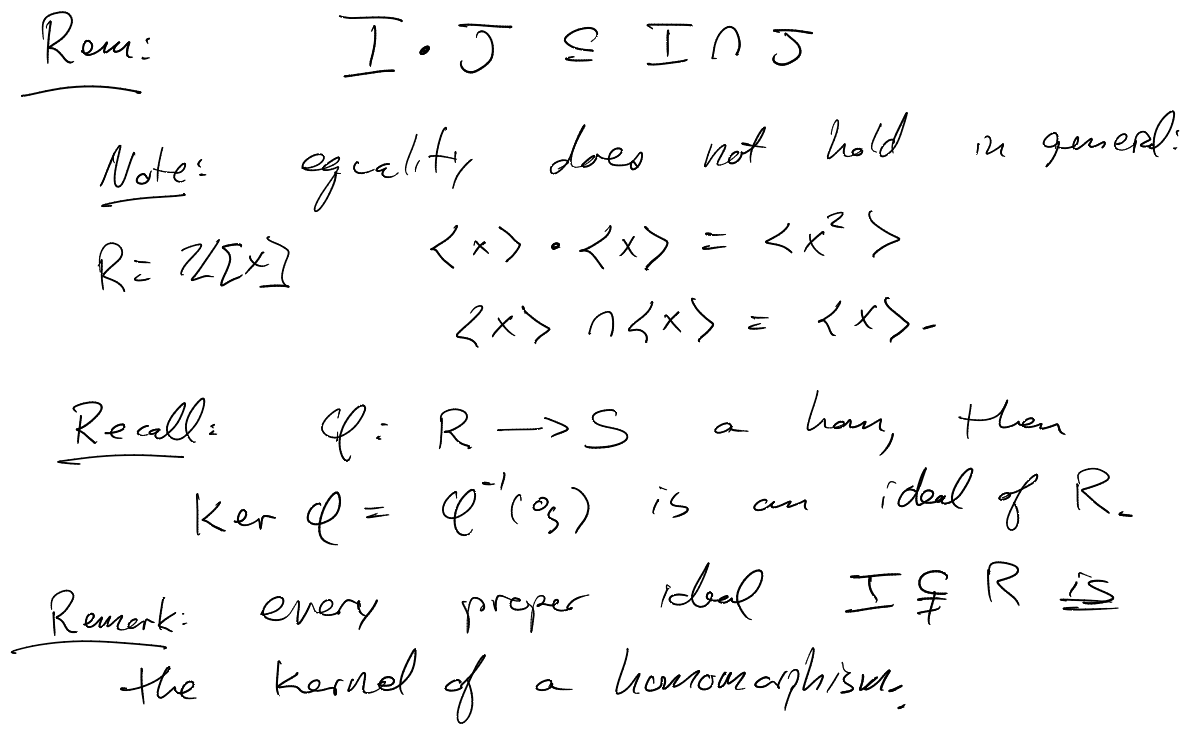 Rem: I · J ⊆ I ∩ J
Note: equality does not hold in general:
R = ℤ[x] <x> · <x> = <x²>
<x> ∩ <x> = <x>.
Recall: φ: R → S a hom, then
Ker φ = φ⁻¹(0_S) is an ideal of R.
Remark: every proper ideal I ⊊ R is
the kernel of a homomorphism.